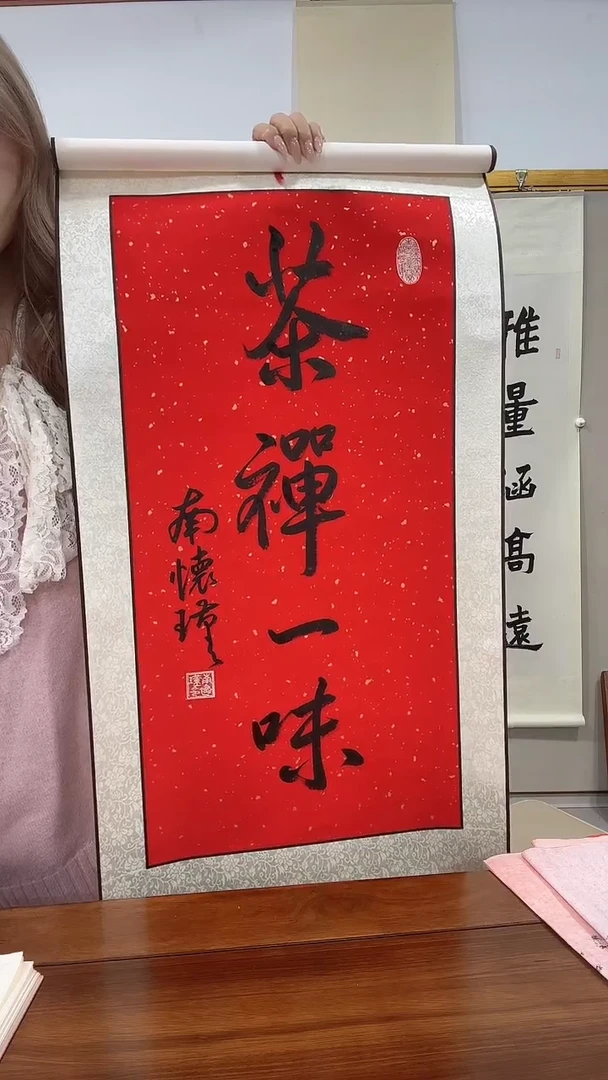 茶禪一味
南懷瑾
雅量涵高遠